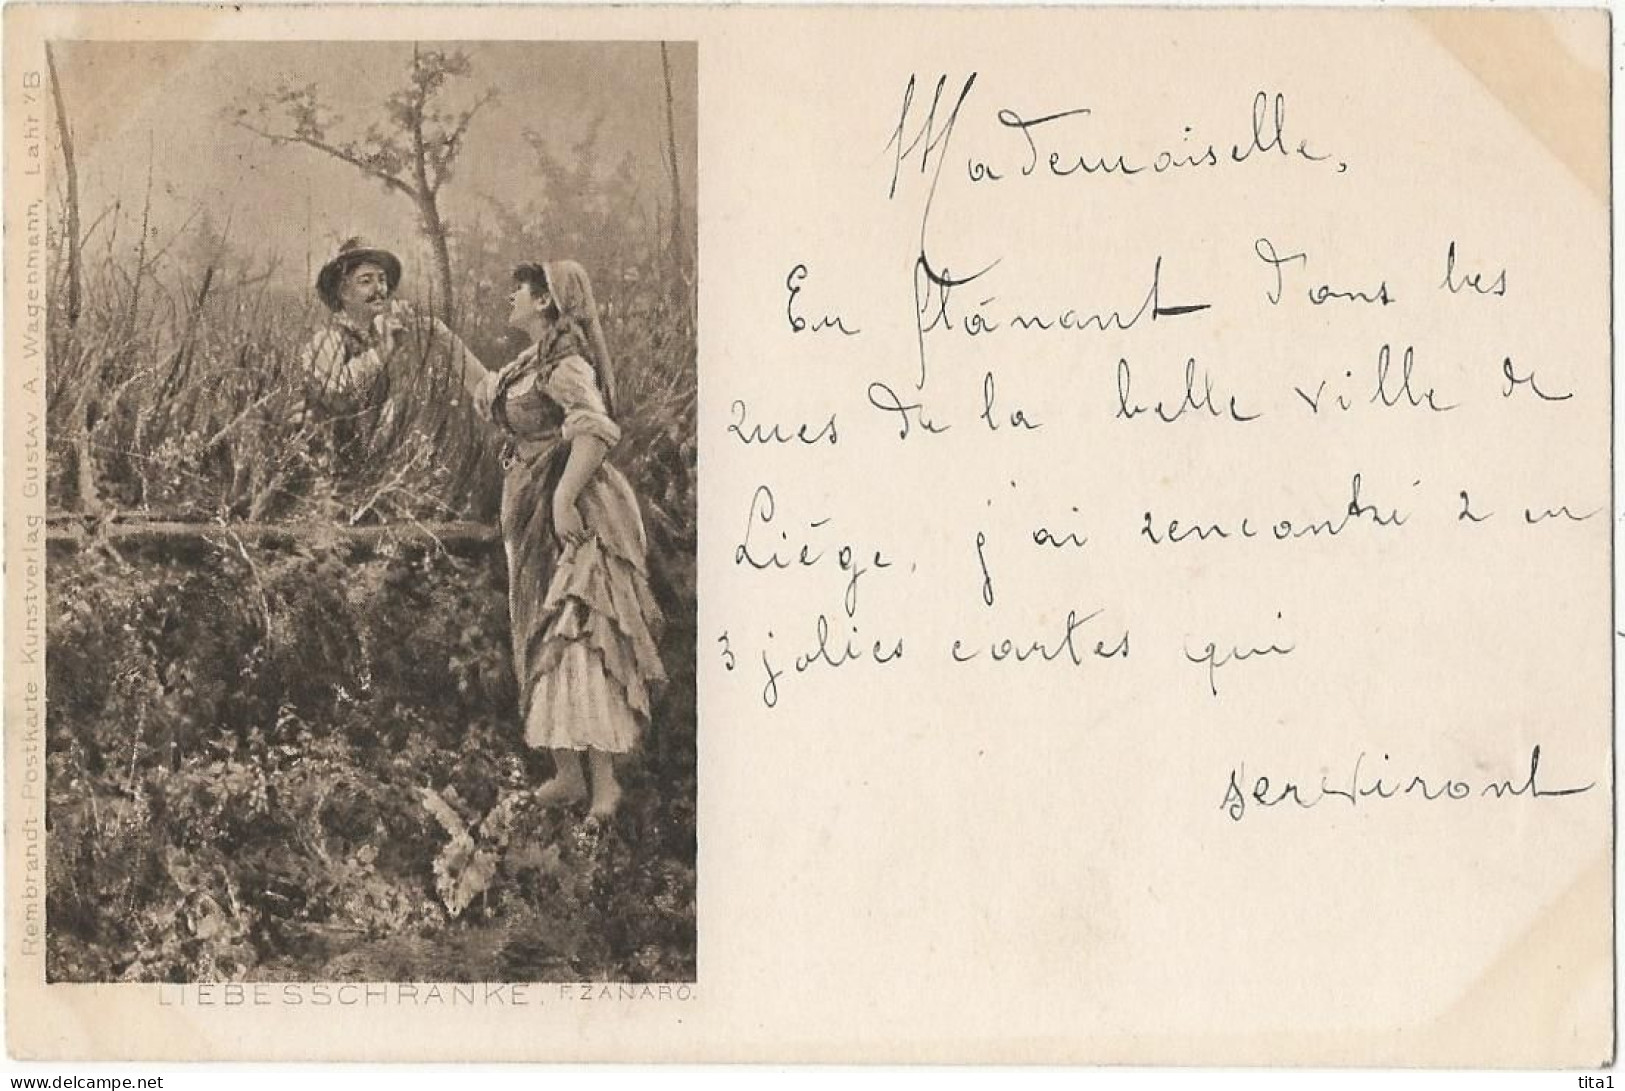 Rembrandt-Postkarte Kunstverlag Gustav A. Wagenmann, Lahr i/B
LIEBESSCHRANKE. F. ZANARO.
Mademoiselle,
En flânant dans les
rues de la belle ville de
Liége, j'ai rencontré 2 ou
3 jolies cartes qui
serviront
www.delcampe.net
tita1